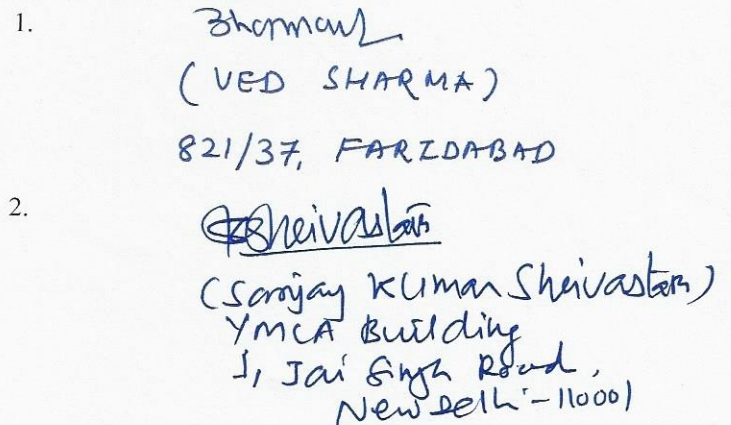 1.
(VED SHARMA)
821/37, FARIDABAD
2.
(Sanjay Kumar Shrivastava)
YMCA Building
1, Jai Singh Road,
New Delhi-110001